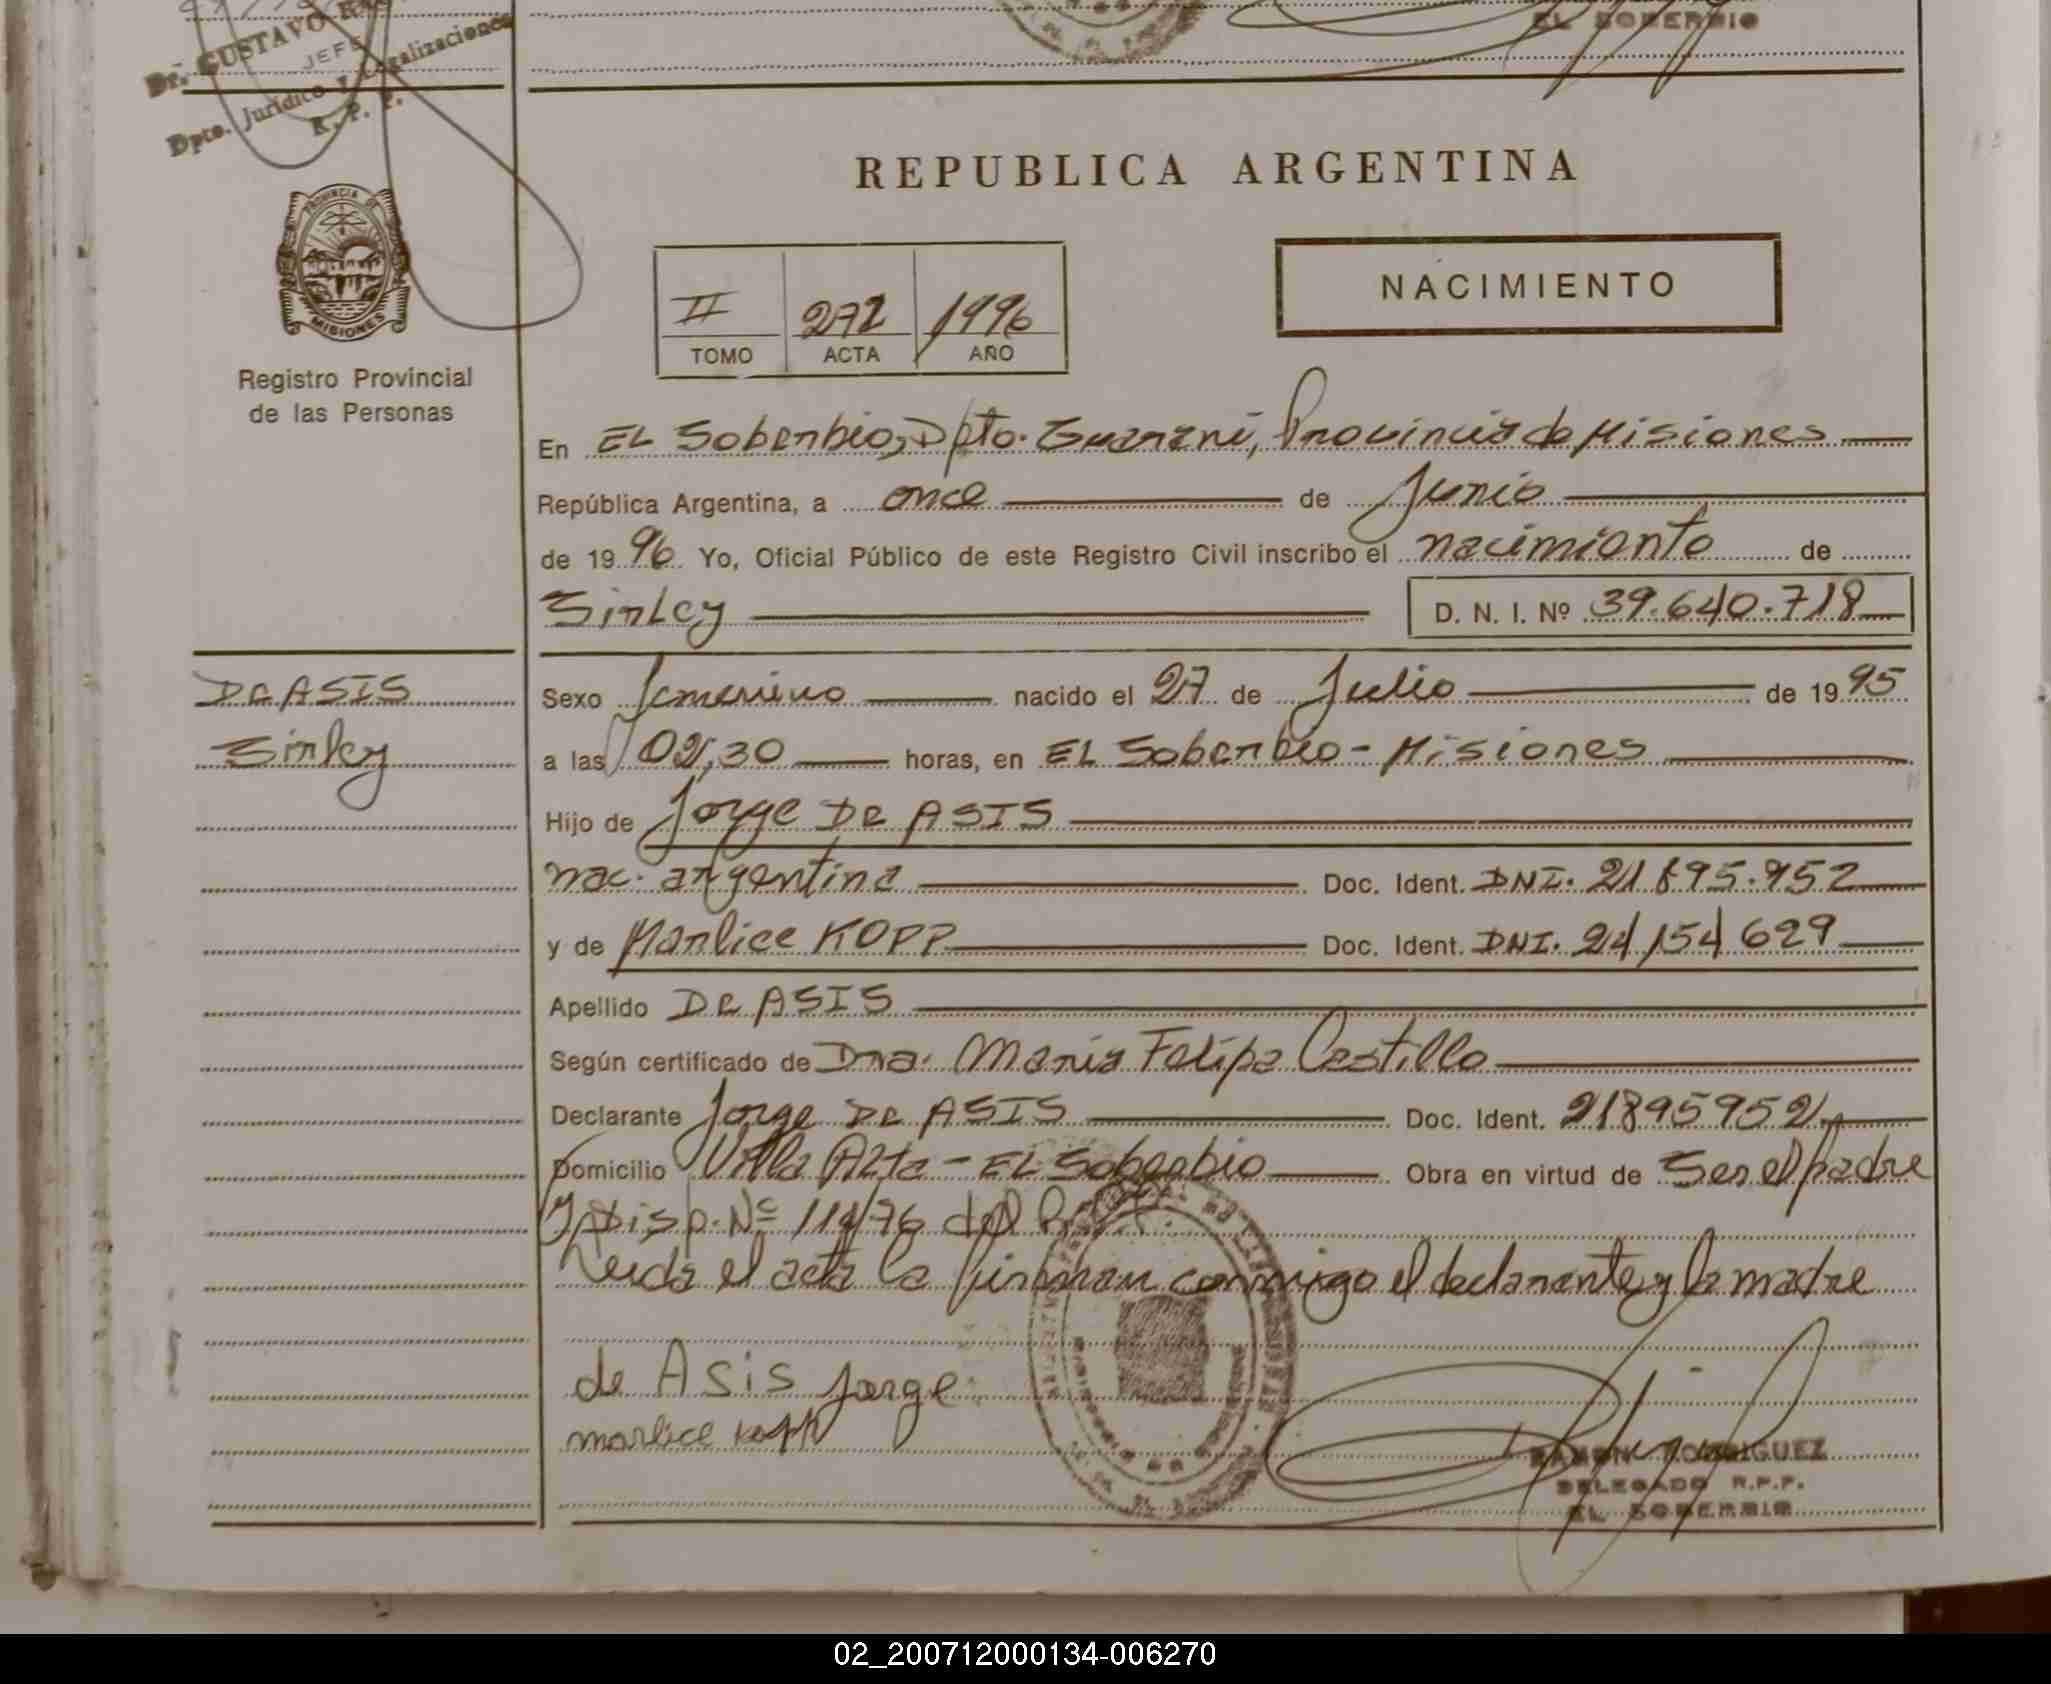 EL SOBERBIO
Dr. GUSTAVO
JEFE
Dpto. Jurídico y Legalizaciones
R. P. P.
REPUBLICA ARGENTINA
NACIMIENTO
II 272 1996
TOMO ACTA AÑO
PROVINCIA DE
MISIONES
Registro Provincial
de las Personas
En EL Soberbio, Dpto. Guarani, Provincia de Misiones
República Argentina, a once de Junio
de 1996 Yo, Oficial Público de este Registro Civil inscribo el nacimiento de
Sirley D. N. I. Nº 39.640.718
De ASIS
Sirley
Sexo femenino nacido el 27 de Julio de 1995
a las 02,30 horas, en EL Soberbio - Misiones
Hijo de Jorge De ASIS
nac. argentina Doc. Ident. DNI. 21 895.952
y de Marlice KOPP Doc. Ident. DNI. 24 154 629
Apellido De ASIS
Según certificado de Dra. Maria Felipa Castillo
Declarante Jorge De ASIS Doc. Ident. 21895952
Domicilio Villa Alta - EL Soberbio Obra en virtud de Ser el padre
y Disp. Nº 114/76 del
Leida el acta la firman conmigo el declarante y la madre
de Asis Jorge
marlice kopp
RAMON RODRIGUEZ
DELEGADO R.P.P.
EL SOBERBIO
02_200712000134-006270